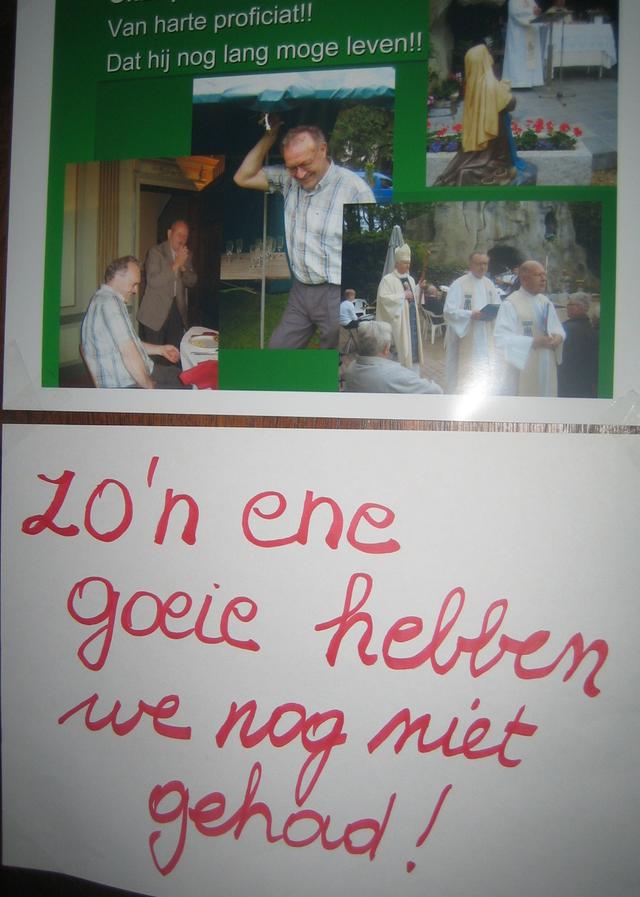 Van harte proficiat!!
Dat hij nog lang moge leven!!
zo'n ene
goeie hebben
we nog niet
gehad!